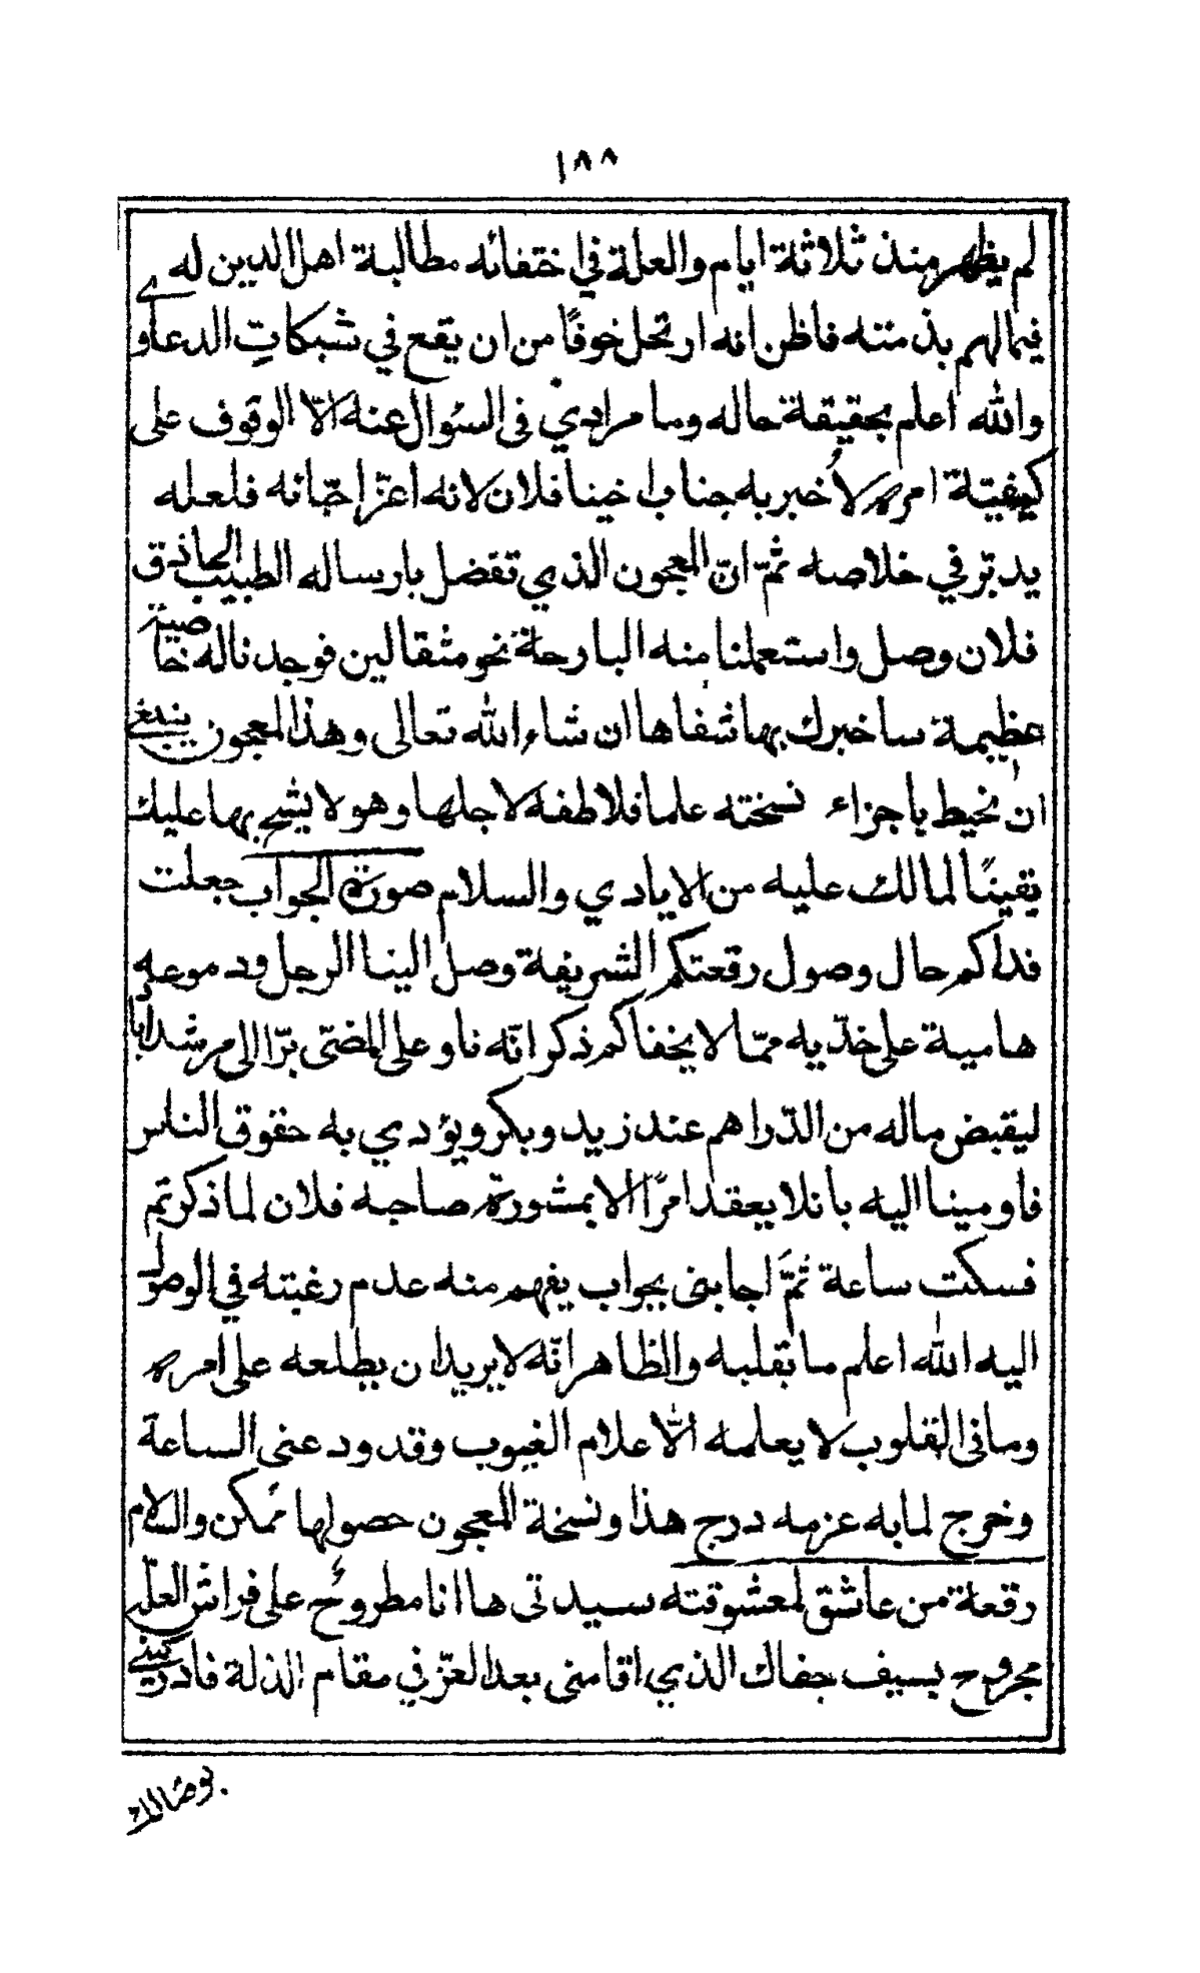 ١٨٨
لم يظهر منذ ثلاثة ايام والعلة في اختفائه مطالبة اهل الدين له
فيما لهم بذمته فاظن انه ارتحل خوفًا من ان يقع في شبكاتِ الدعاو
والله اعلم بحقيقة حاله وما مرادي في السُوال عنه الّا الوقوف على
كيفيّة امره لأُخبر به جناب اخينا فلان لانه اعزّ احبّائه فلعله
يدبّر في خلاصه ثمّ انّ المعجون الذي تفضل بارساله الطبيب الحاذق
فلان وصل واستعملنا منه البارحة نحو مثقالين فوجدنا له خاصيّة
عظيمة ساخبرك بها شفاها ان شاء الله تعالى وهذا المعجون ينبغي
ان نحيط بأجزاء نسخته علما فلاطفه لاجلها وهو لا يشح بها عليك
يقينًا لما لك عليه من الايادي والسلام صورة الجواب جعلت
فداكم حال وصول رقعتكم الشريفة وصل الينا الرجل ودموعه
هامية على خدّيه ممّا لا يخفاكم ذكر انّه ناو على المضّى برّا الى مرشداباد
ليقبض ماله من الدّراهم عند زيد وبكر ويؤدي به حقوق الناس
فاومينا اليه بانلا يعقد امرًا الا بمشورة صاحبه فلان لما ذكرتم
فسكت ساعة ثمَّ اجابنى بجواب يفهم منه عدم رغبته في الوصول
اليه الله اعلم ما بقلبه والظاهر انّه لا يريد ان يطلعه على امره
وما في القلوب لا يعلمه الّا علام الغيوب وقد ودعنى الساعة
وخرج لما به عزمه درج هذا ونسخة المعجون حصولها ممكن والسلام
رقعة من عاشق لمعشوقته سيدتى ها انا مطروح على فراش العلّة
مجروح بسيف جفاك الذي اقامنى بعد العزّ في مقام الذلة فادركينى
بوصالك